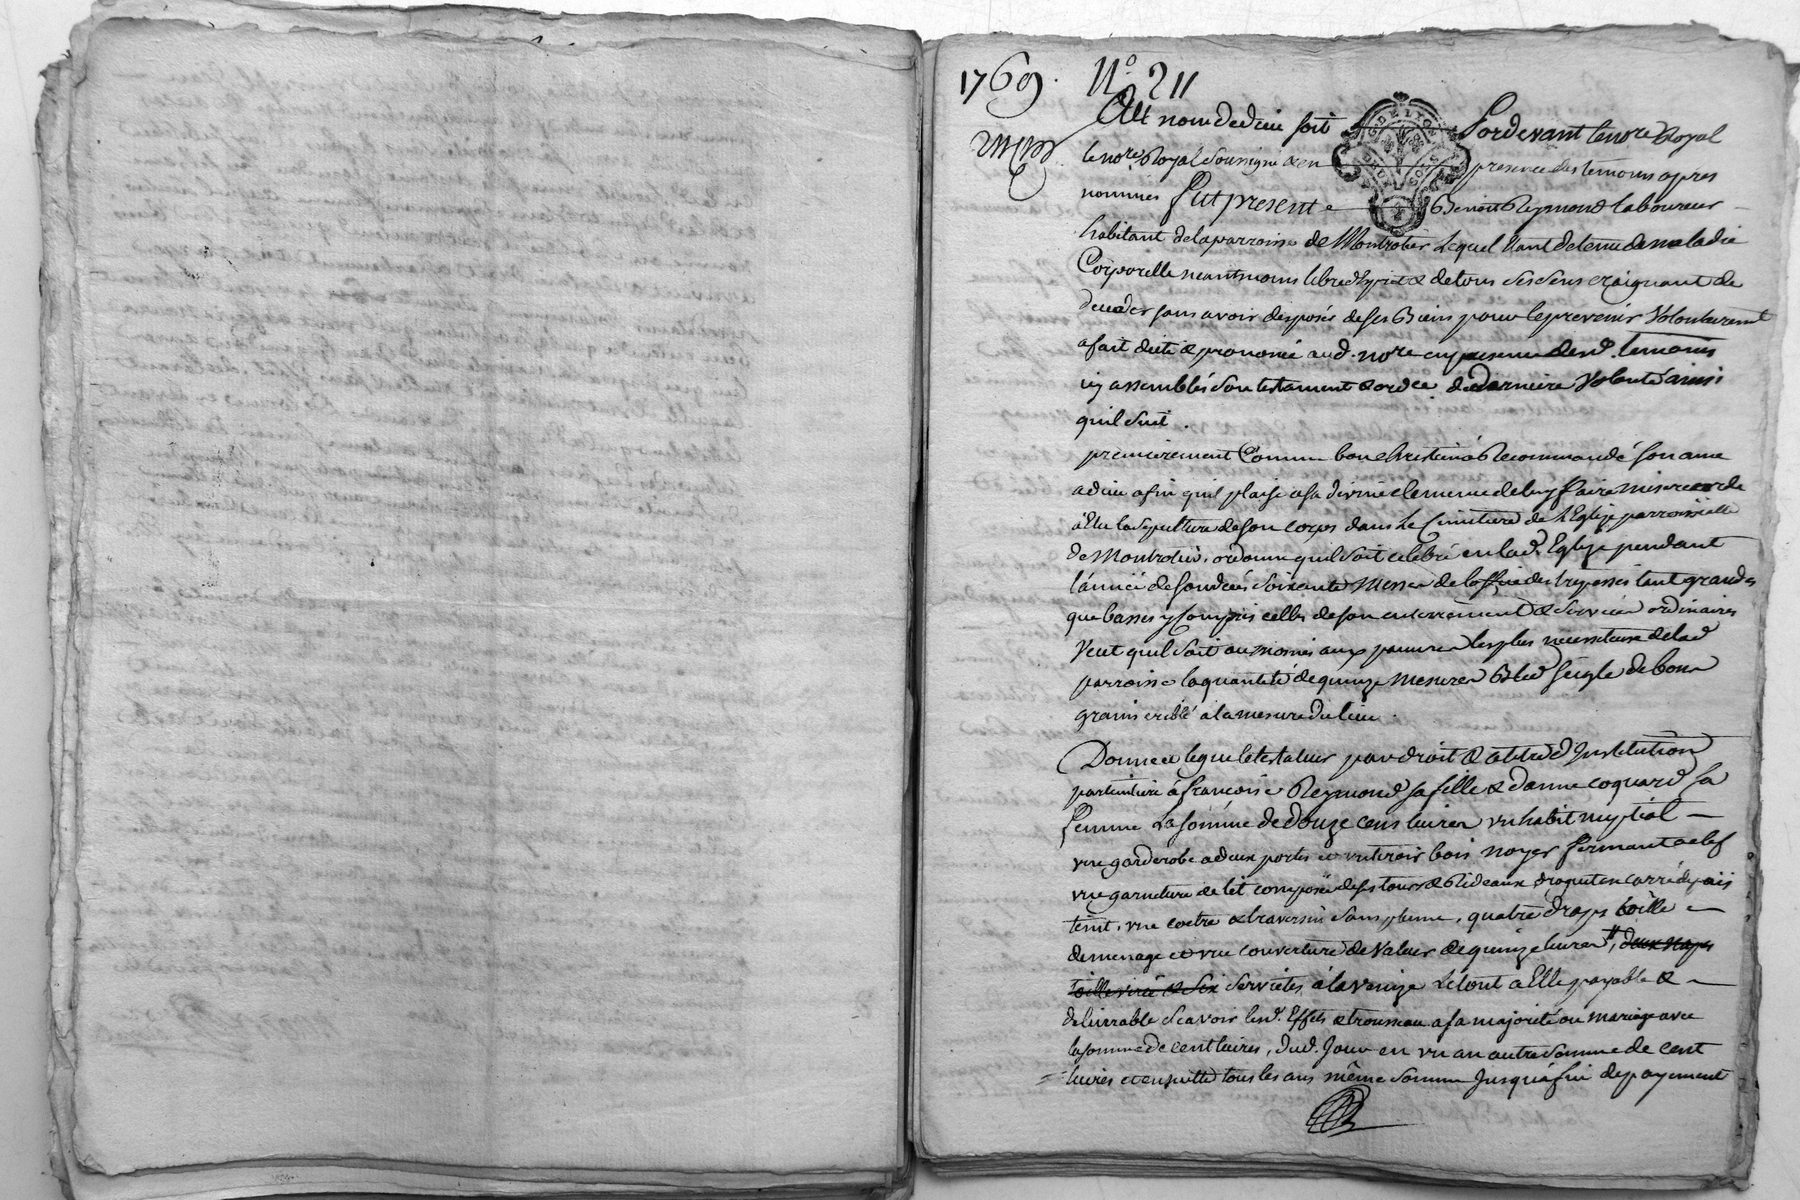 1769. N° 211
Au nom de dieu soit Pardevant le no.re Royal
le no.re Royal soussigné & en presence des temoins apres
nommés Fut present Benoit Reymond laboureur
habitant de la parroisse de Montrotier lequel etant detenu de maladie
Corporelle neantmoins libre d'esprit & de tous ses sens craignant de
deceder sans avoir disposé de ses Biens pour le prevenir Volontairemt
a fait dicté & prononcé aud. no.re en presence desd. temoins
icy assemblés son testament & ord.ce de derniere Volonté ainsi
quil suit.
premierement Comme bon chrestien a Recommandé son ame
a dieu afin quil plaise a sa divine clemence de luy faire misericorde
élu la sepulture de son corps dans le Cimitiere de l'Eglise parroissialle
de Montrotier, ordonne quil soit celebré en lad. Eglise pendant
l'année de son decés soixante Messes de l'office des trepassés tant grandes
que basses y Compris celles de son enterrement & services ordinaires
Veut quil soit aumoné aux pauvres les plus necessiteux de lad
parroisse la quantité de quinze mesures Bled seigle de bon
grain criblé a la mesure du lieu.
Donne & legue le testateur par droit & a titre d'Institution
particuliere à françoise Reymond sa fille & d'anne coquard sa
femme la somme de Douze cens livres un habit nuptial
une garderobe a deux portes et un tiroir bois noyer fermant a clef
une garniture de lit composée de ses tours & Rideaux droguet en carré de pais
teint, une coetre & traversin sans plume, quatre draps toille
de menage et une couverture de valeur de quinze livres, deux naps
toille & Six Serviettes à la venize le tout a Elle payable &
delivrable scavoir lesd. Effets & trousseau a sa majorité ou mariage avec
la somme de cent livres, dud. Jour en un an autre somme de cent
livres et ensuitte tous les ans même somme jusqu'à fin de payement